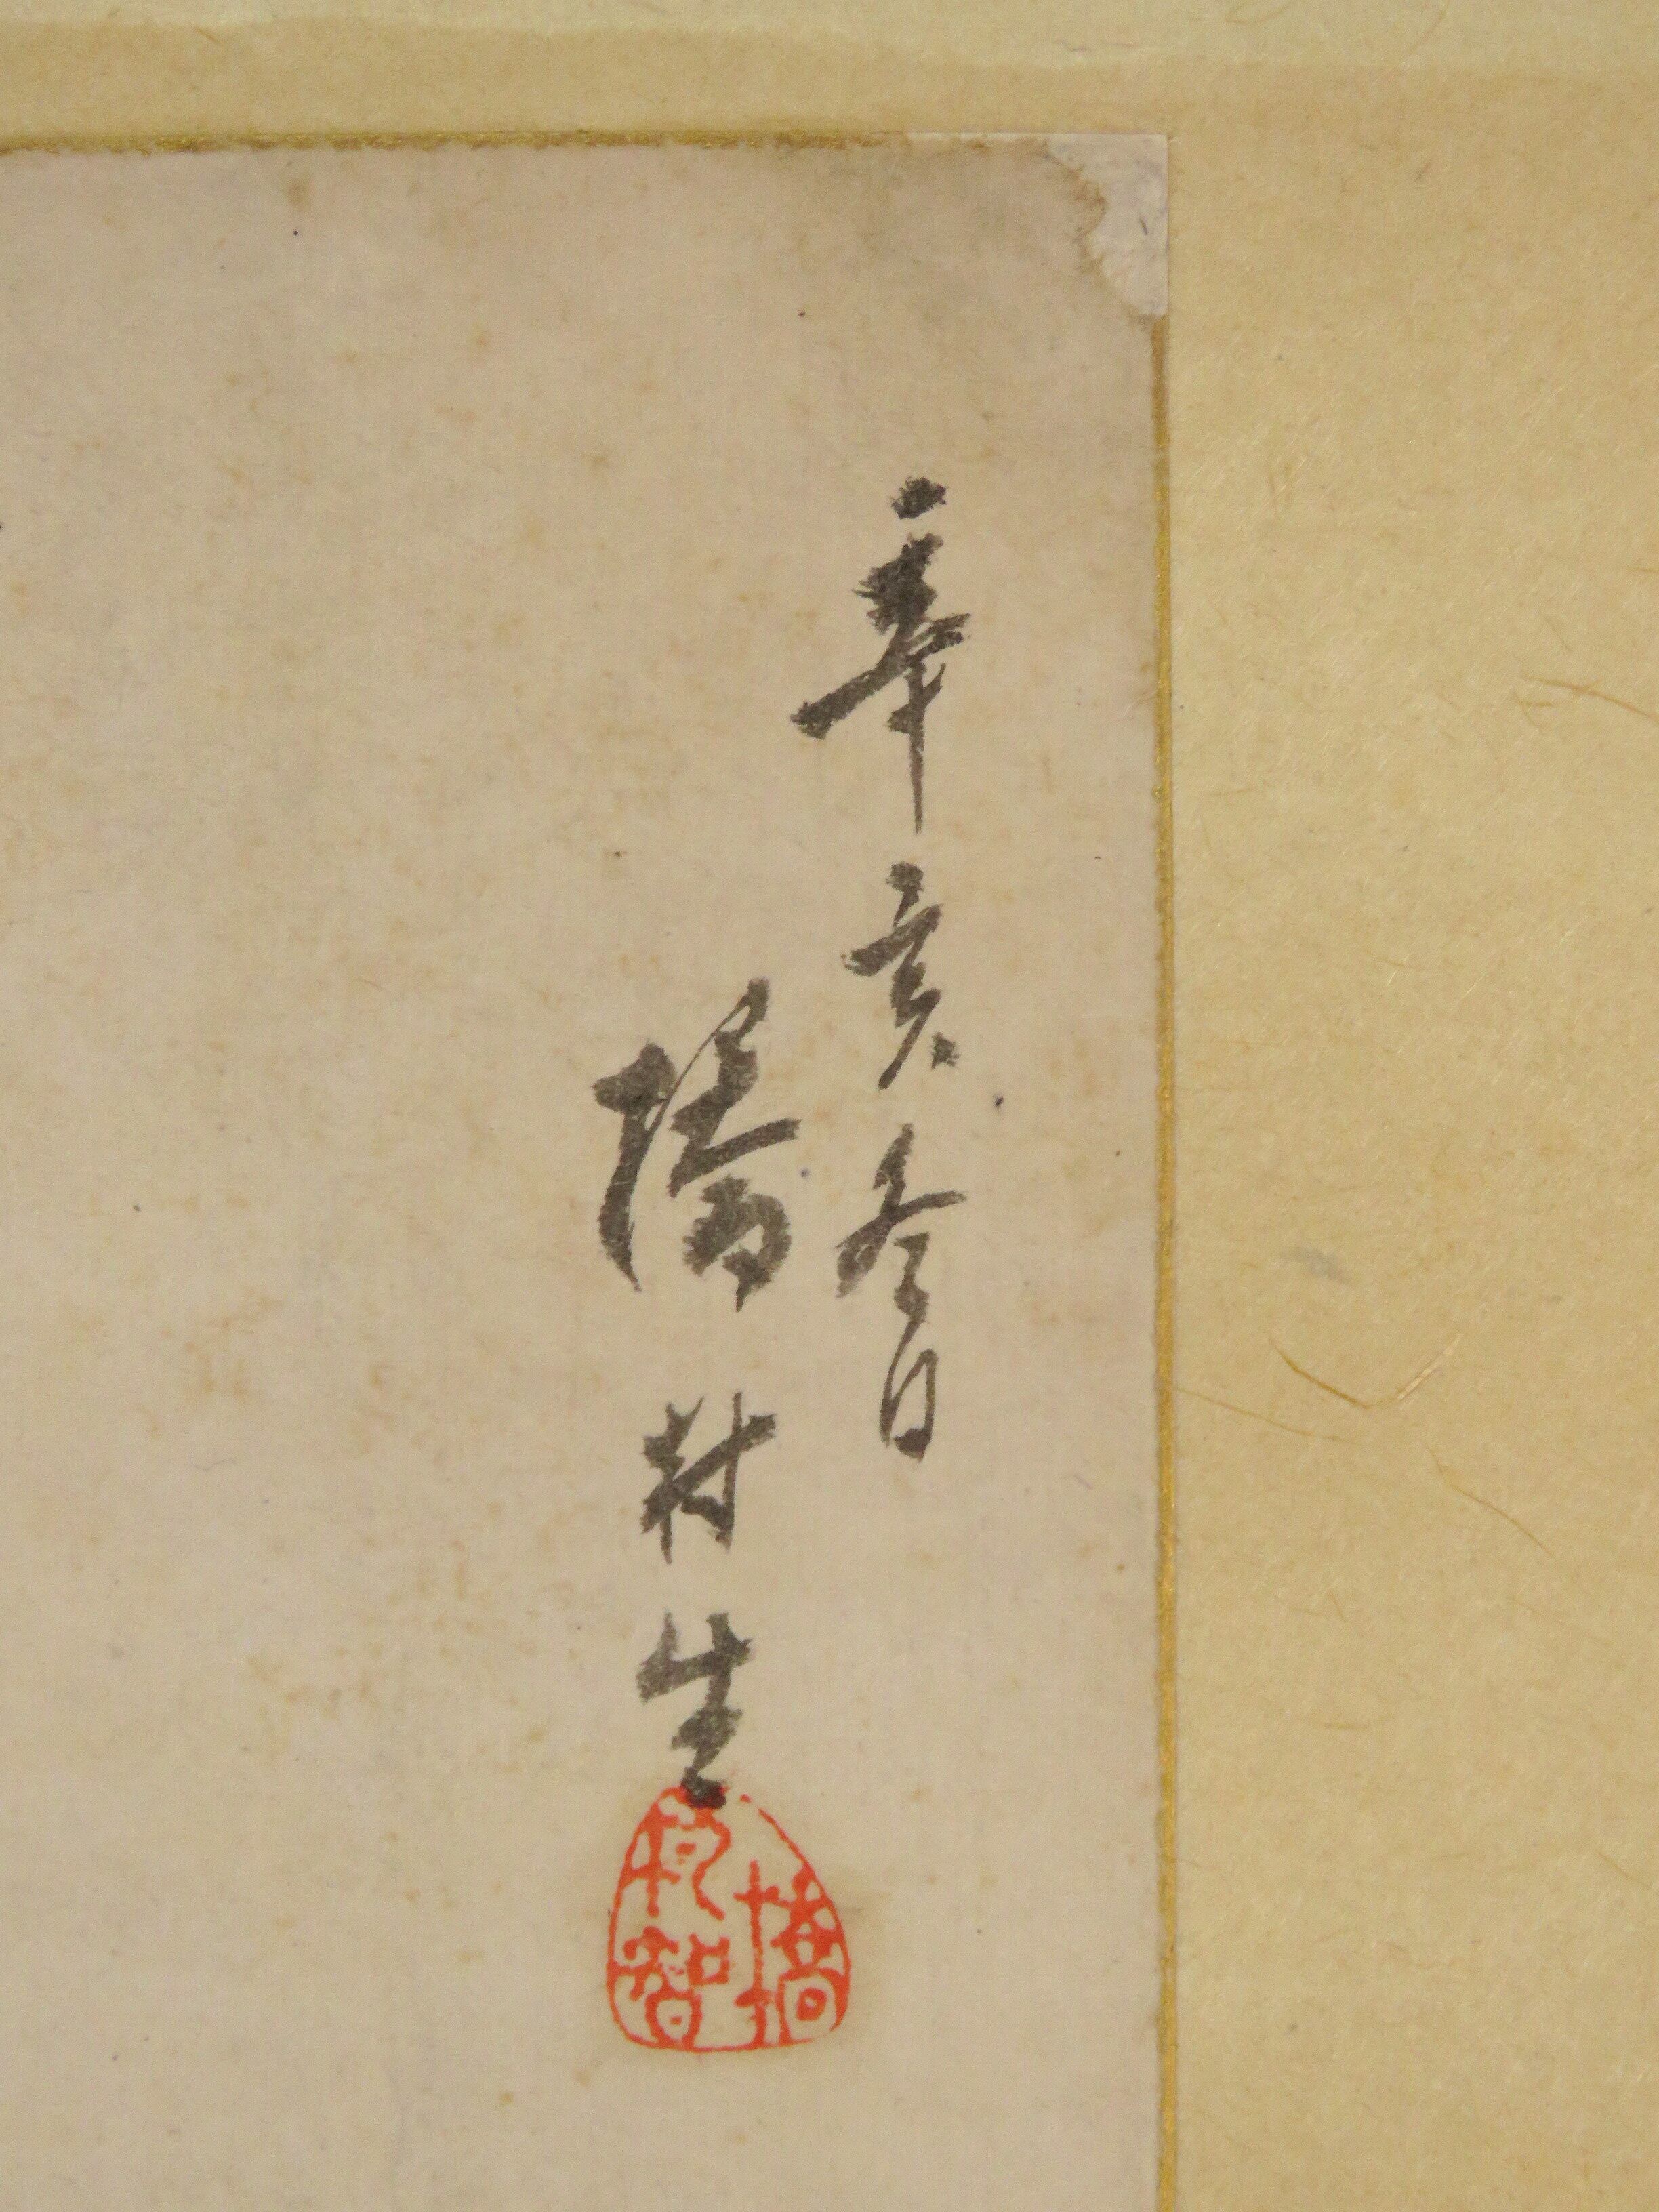 辛亥冬日
橋村生
橋